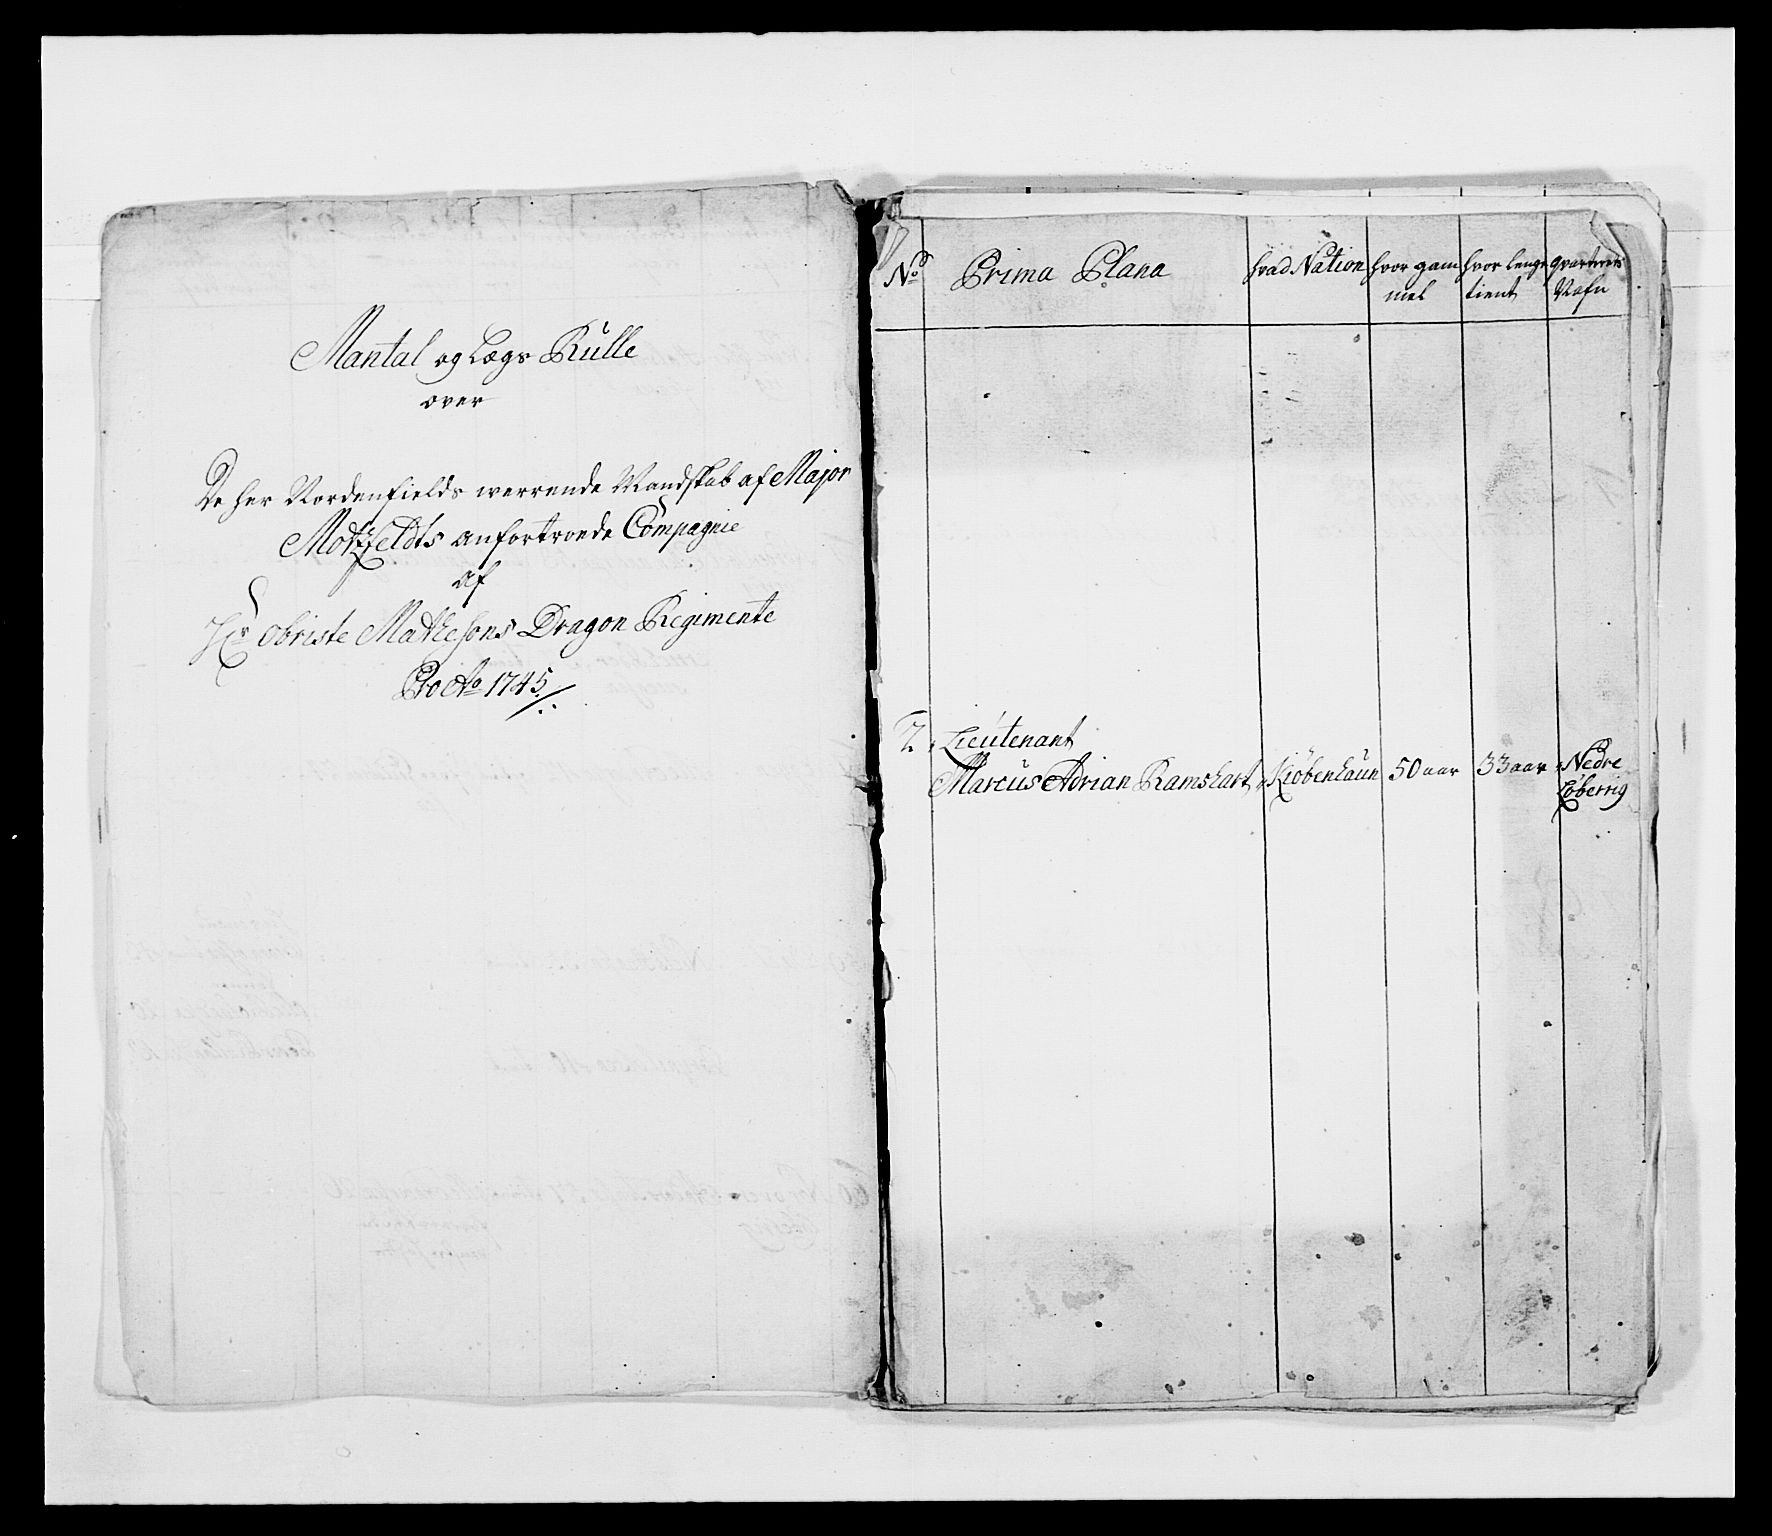 Mantal og Lægs Rulle
over
De her Nordenfields werrende Mandskab af Major
Motzfeldts anfortroede Compagnie
af
Hr Obriste Mathesons Dragon Regimente
Pro Ao 1745
No Prima Plana hvad Nation hvor gam hvor lenge qvarterets
mel tient Nafn
2 Lieutenant
Marcus Adrian Ramshart Kiöbenhaun 50 aar 33 aar Nedre